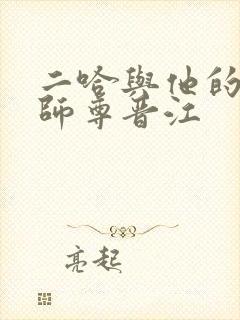 二哈與他的
師尊晋江
亮起